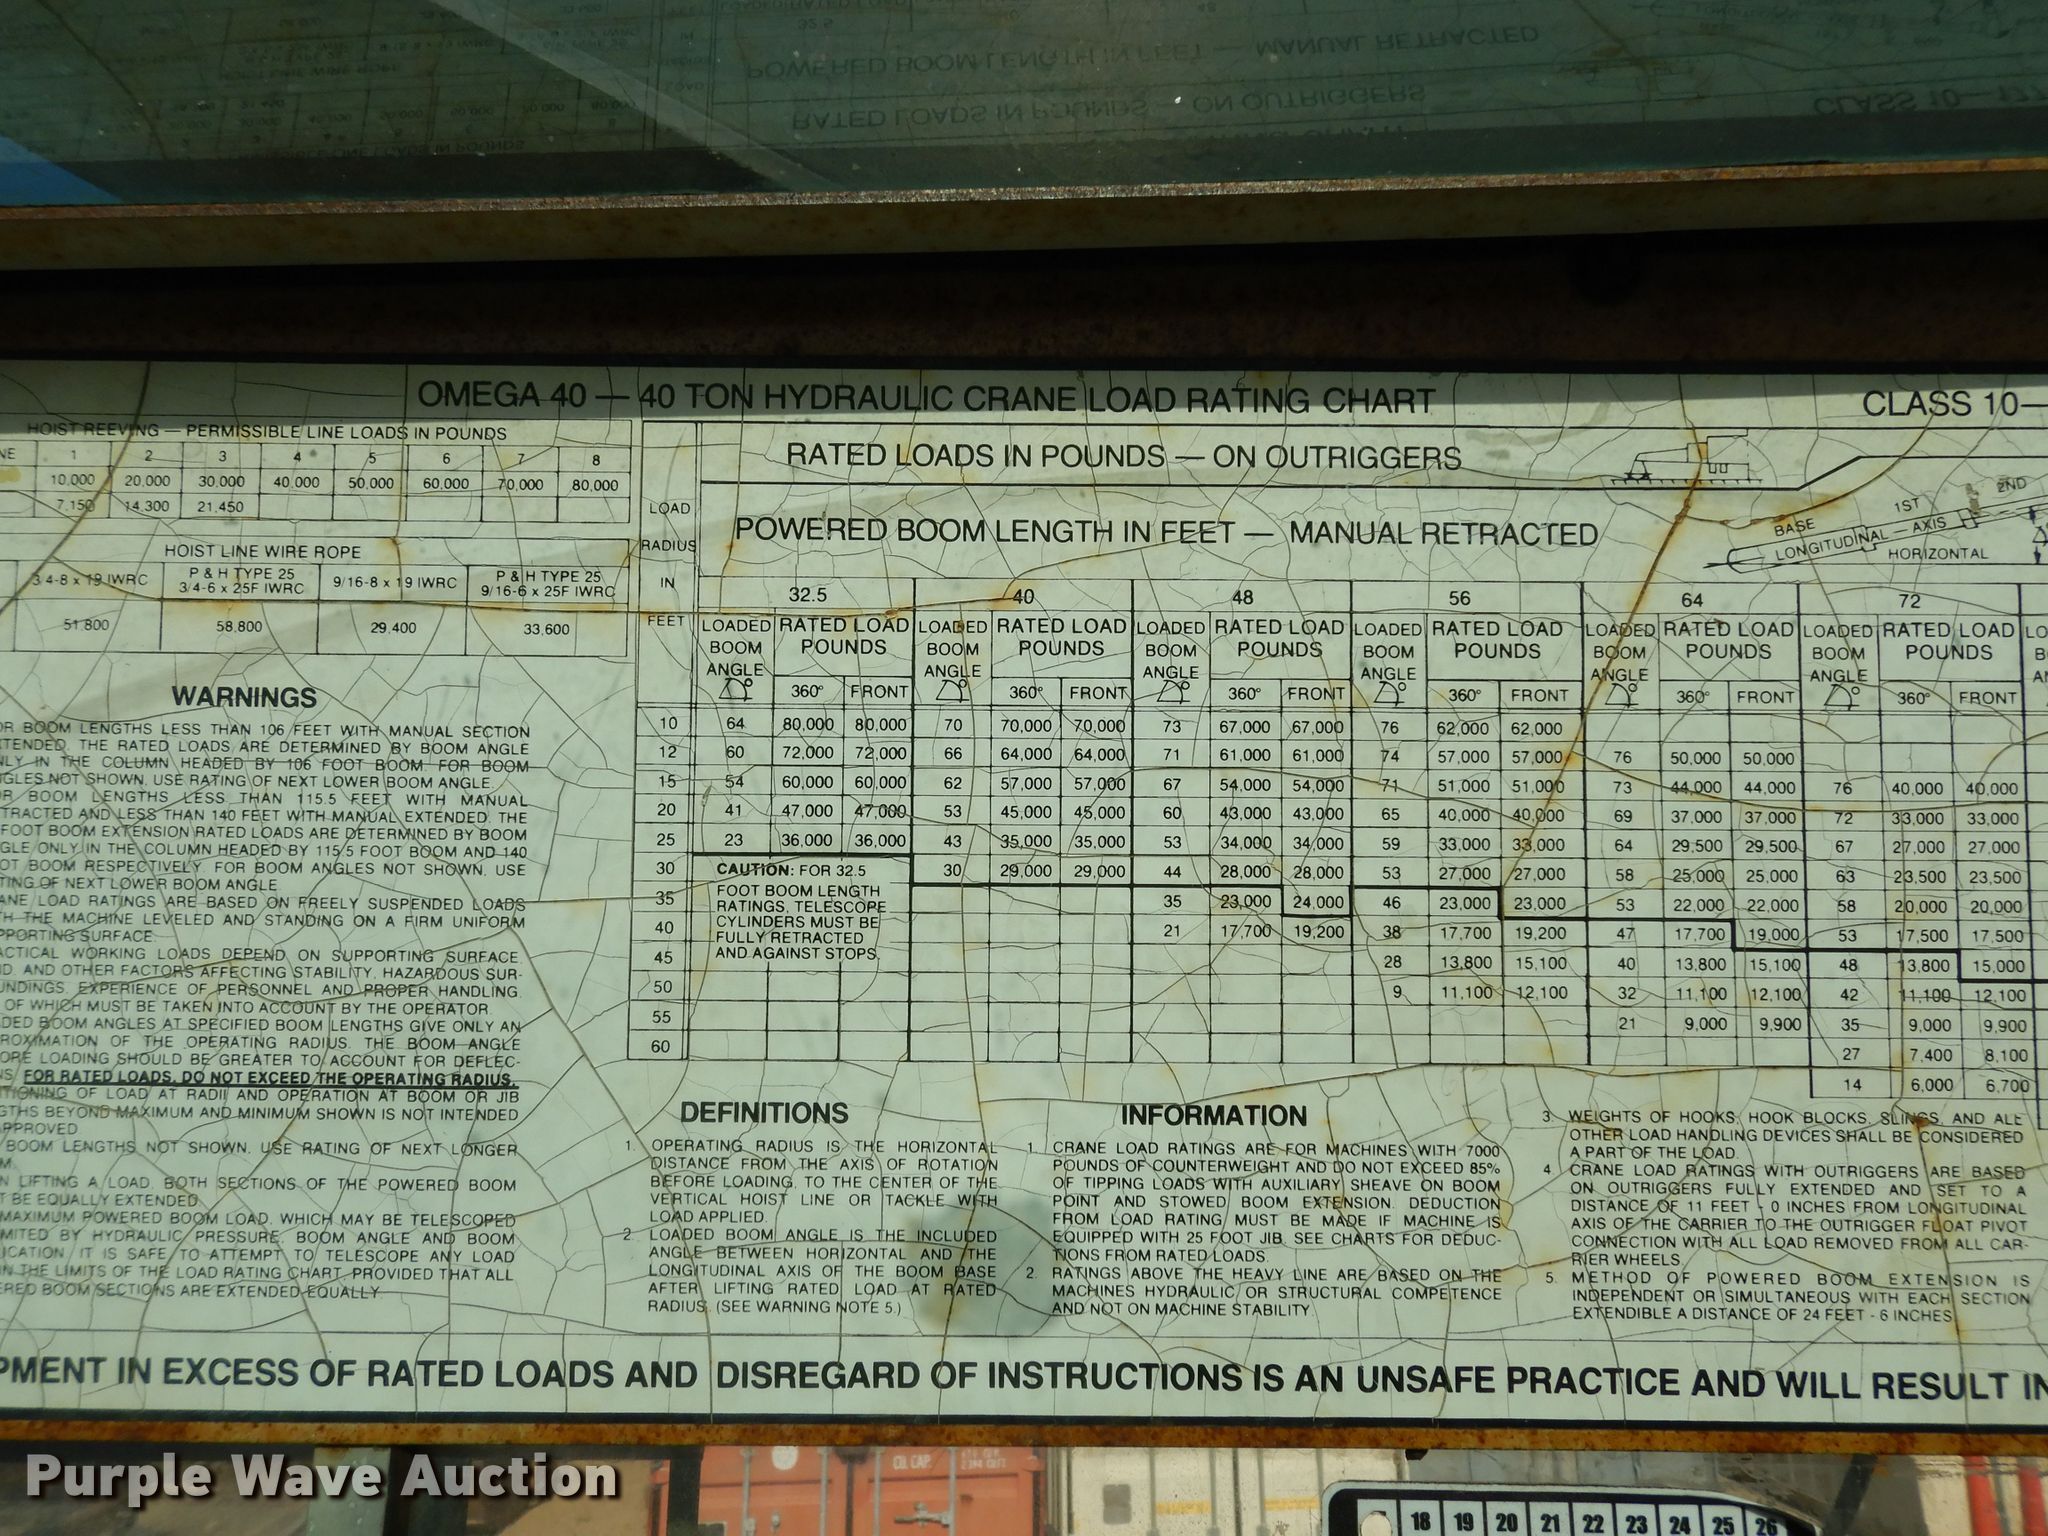 RATED LOADS IN POUNDS — ON OUTRIGGERS
POWERED BOOM LENGTH IN FEET — MANUAL RETRACTED
OMEGA 40 — 40 TON HYDRAULIC CRANE LOAD RATING CHART
CLASS 10—
HOIST REEVING — PERMISSIBLE LINE LOADS IN POUNDS
NE 1 2 3 4 5 6 7 8
10,000 20,000 30,000 40,000 50,000 60,000 70,000 80,000
7,150 14,300 21,450
HOIST LINE WIRE ROPE
3/4-8 x 19 IWRC P & H TYPE 25 3/4-6 x 25F IWRC 9/16-8 x 19 IWRC P & H TYPE 25 9/16-6 x 25F IWRC
51,800 58,800 29,400 33,600
WARNINGS
OR BOOM LENGTHS LESS THAN 106 FEET WITH MANUAL SECTION
XTENDED. THE RATED LOADS ARE DETERMINED BY BOOM ANGLE
NLY IN THE COLUMN HEADED BY 106 FOOT BOOM. FOR BOOM
NGLES NOT SHOWN. USE RATING OF NEXT LOWER BOOM ANGLE.
OR BOOM LENGTHS LESS THAN 115.5 FEET WITH MANUAL
TRACTED AND LESS THAN 140 FEET WITH MANUAL EXTENDED. THE
FOOT BOOM EXTENSION RATED LOADS ARE DETERMINED BY BOOM
GLE ONLY IN THE COLUMN HEADED BY 115.5 FOOT BOOM AND 140
OOT BOOM RESPECTIVELY. FOR BOOM ANGLES NOT SHOWN. USE
TING OF NEXT LOWER BOOM ANGLE.
ANE LOAD RATINGS ARE BASED ON FREELY SUSPENDED LOADS
TH THE MACHINE LEVELED AND STANDING ON A FIRM UNIFORM
PPORTING SURFACE.
ACTICAL WORKING LOADS DEPEND ON SUPPORTING SURFACE,
ND, AND OTHER FACTORS AFFECTING STABILITY, HAZARDOUS SUR-
UNDINGS, EXPERIENCE OF PERSONNEL AND PROPER HANDLING.
OF WHICH MUST BE TAKEN INTO ACCOUNT BY THE OPERATOR.
DED BOOM ANGLES AT SPECIFIED BOOM LENGTHS GIVE ONLY AN
ROXIMATION OF THE OPERATING RADIUS. THE BOOM ANGLE
ORE LOADING SHOULD BE GREATER TO ACCOUNT FOR DEFLEC-
NS. FOR RATED LOADS, DO NOT EXCEED THE OPERATING RADIUS.
ITIONING OF LOAD AT RADII AND OPERATION AT BOOM OR JIB
GTHS BEYOND MAXIMUM AND MINIMUM SHOWN IS NOT INTENDED
APPROVED
BOOM LENGTHS NOT SHOWN, USE RATING OF NEXT LONGER
M.
N LIFTING A LOAD, BOTH SECTIONS OF THE POWERED BOOM
T BE EQUALLY EXTENDED.
MAXIMUM POWERED BOOM LOAD, WHICH MAY BE TELESCOPED
IMITED BY HYDRAULIC PRESSURE, BOOM ANGLE AND BOOM
ICATION. IT IS SAFE TO ATTEMPT TO TELESCOPE ANY LOAD
IN THE LIMITS OF THE LOAD RATING CHART PROVIDED THAT ALL
ERED BOOM SECTIONS ARE EXTENDED EQUALLY.
RATED LOADS IN POUNDS — ON OUTRIGGERS
POWERED BOOM LENGTH IN FEET — MANUAL RETRACTED
BASE 1ST 2ND
LONGITUDINAL — AXIS
HORIZONTAL
LOAD RADIUS IN FEET
32.5 40 48 56 64 72
LOADED BOOM ANGLE RATED LOAD POUNDS LOADED BOOM ANGLE RATED LOAD POUNDS LOADED BOOM ANGLE RATED LOAD POUNDS LOADED BOOM ANGLE RATED LOAD POUNDS LOADED BOOM ANGLE RATED LOAD POUNDS LOADED BOOM ANGLE RATED LOAD POUNDS
360° FRONT 360° FRONT 360° FRONT 360° FRONT 360° FRONT 360° FRONT
10 64 80,000 80,000 70 70,000 70,000 73 67,000 67,000 76 62,000 62,000
12 60 72,000 72,000 66 64,000 64,000 71 61,000 61,000 74 57,000 57,000 76 50,000 50,000
15 54 60,000 60,000 62 57,000 57,000 67 54,000 54,000 71 51,000 51,000 73 44,000 44,000 76 40,000 40,000
20 41 47,000 47,000 53 45,000 45,000 60 43,000 43,000 65 40,000 40,000 69 37,000 37,000 72 33,000 33,000
25 23 36,000 36,000 43 35,000 35,000 53 34,000 34,000 59 33,000 33,000 64 29,500 29,500 67 27,000 27,000
30 30 29,000 29,000 44 28,000 28,000 53 27,000 27,000 58 25,000 25,000 63 23,500 23,500
35 35 23,000 24,000 46 23,000 23,000 53 22,000 22,000 58 20,000 20,000
40 21 17,700 19,200 38 17,700 19,200 47 17,700 19,000 53 17,500 17,500
45 28 13,800 15,100 40 13,800 15,100 48 13,800 15,000
50 9 11,100 12,100 32 11,100 12,100 42 11,100 12,100
55 21 9,000 9,900 35 9,000 9,900
60 27 7,400 8,100
14 6,000 6,700
CAUTION: FOR 32.5
FOOT BOOM LENGTH
RATINGS, TELESCOPE
CYLINDERS MUST BE
FULLY RETRACTED
AND AGAINST STOPS.
DEFINITIONS
1. OPERATING RADIUS IS THE HORIZONTAL
DISTANCE FROM THE AXIS OF ROTATION
BEFORE LOADING, TO THE CENTER OF THE
VERTICAL HOIST LINE OR TACKLE WITH
LOAD APPLIED.
2. LOADED BOOM ANGLE IS THE INCLUDED
ANGLE BETWEEN HORIZONTAL AND THE
LONGITUDINAL AXIS OF THE BOOM BASE
AFTER LIFTING RATED LOAD AT RATED
RADIUS. (SEE WARNING NOTE 5.)
INFORMATION
1. CRANE LOAD RATINGS ARE FOR MACHINES WITH 7000
POUNDS OF COUNTERWEIGHT AND DO NOT EXCEED 85%
OF TIPPING LOADS WITH AUXILIARY SHEAVE ON BOOM
POINT AND STOWED BOOM EXTENSION. DEDUCTION
FROM LOAD RATING MUST BE MADE IF MACHINE IS
EQUIPPED WITH 25 FOOT JIB. SEE CHARTS FOR DEDUC-
TIONS FROM RATED LOADS.
2. RATINGS ABOVE THE HEAVY LINE ARE BASED ON THE
MACHINES HYDRAULIC OR STRUCTURAL COMPETENCE
AND NOT ON MACHINE STABILITY.
3. WEIGHTS OF HOOKS, HOOK BLOCKS, SLINGS, AND ALL
OTHER LOAD HANDLING DEVICES SHALL BE CONSIDERED
A PART OF THE LOAD.
4. CRANE LOAD RATINGS WITH OUTRIGGERS ARE BASED
ON OUTRIGGERS FULLY EXTENDED AND SET TO A
DISTANCE OF 11 FEET - 0 INCHES FROM LONGITUDINAL
AXIS OF THE CARRIER TO THE OUTRIGGER FLOAT PIVOT
CONNECTION WITH ALL LOAD REMOVED FROM ALL CAR-
RIER WHEELS.
5. METHOD OF POWERED BOOM EXTENSION IS
INDEPENDENT OR SIMULTANEOUS WITH EACH SECTION
EXTENDIBLE A DISTANCE OF 24 FEET - 6 INCHES.
PMENT IN EXCESS OF RATED LOADS AND DISREGARD OF INSTRUCTIONS IS AN UNSAFE PRACTICE AND WILL RESULT IN
Purple Wave Auction
18 19 20 21 22 23 24 25 26